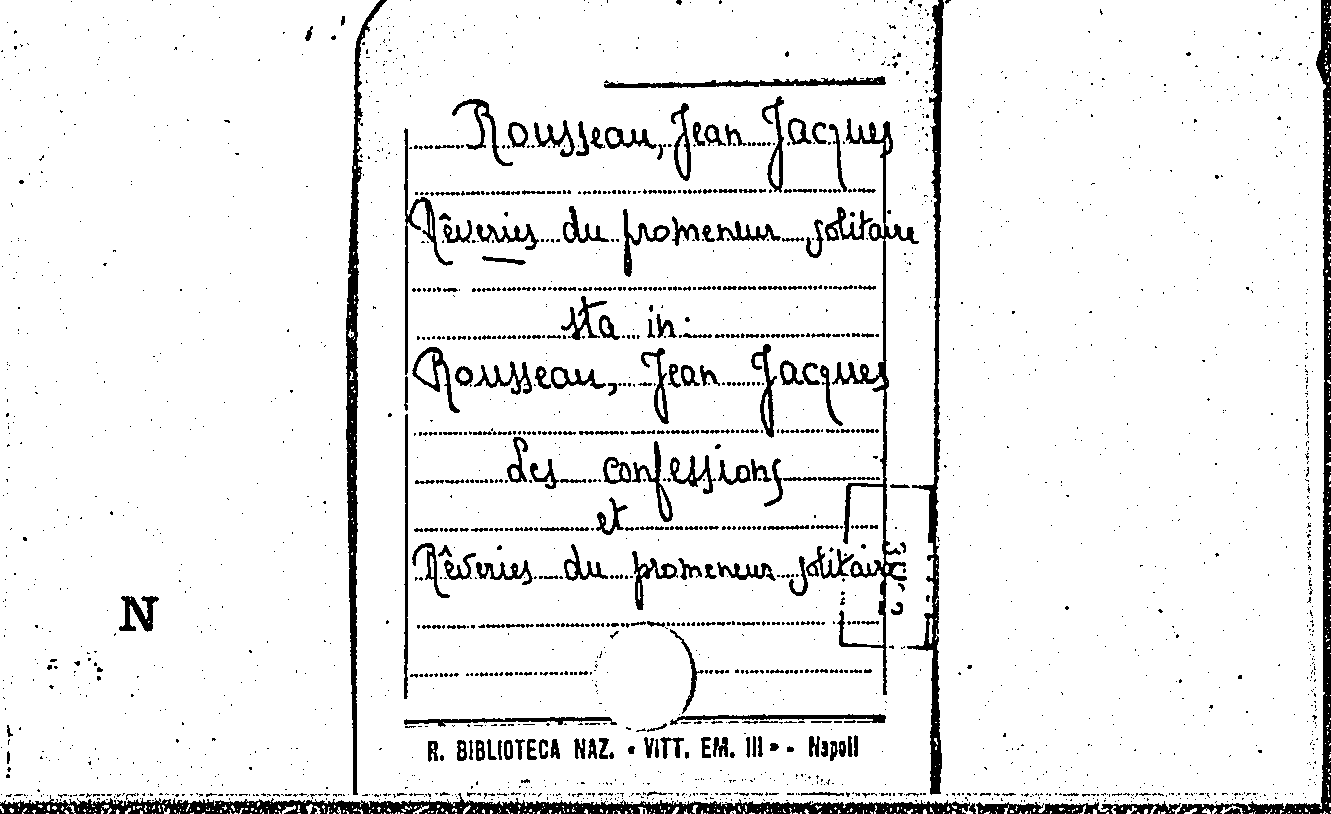 Rousseau, Jean Jacques
Rêveries du promeneur solitaire
sta in:
Rousseau, Jean Jacques
Les confessions
et
Rêveries du promeneur solitaire
N
R. BIBLIOTECA NAZ. « VITT. EM. III » - Napoli